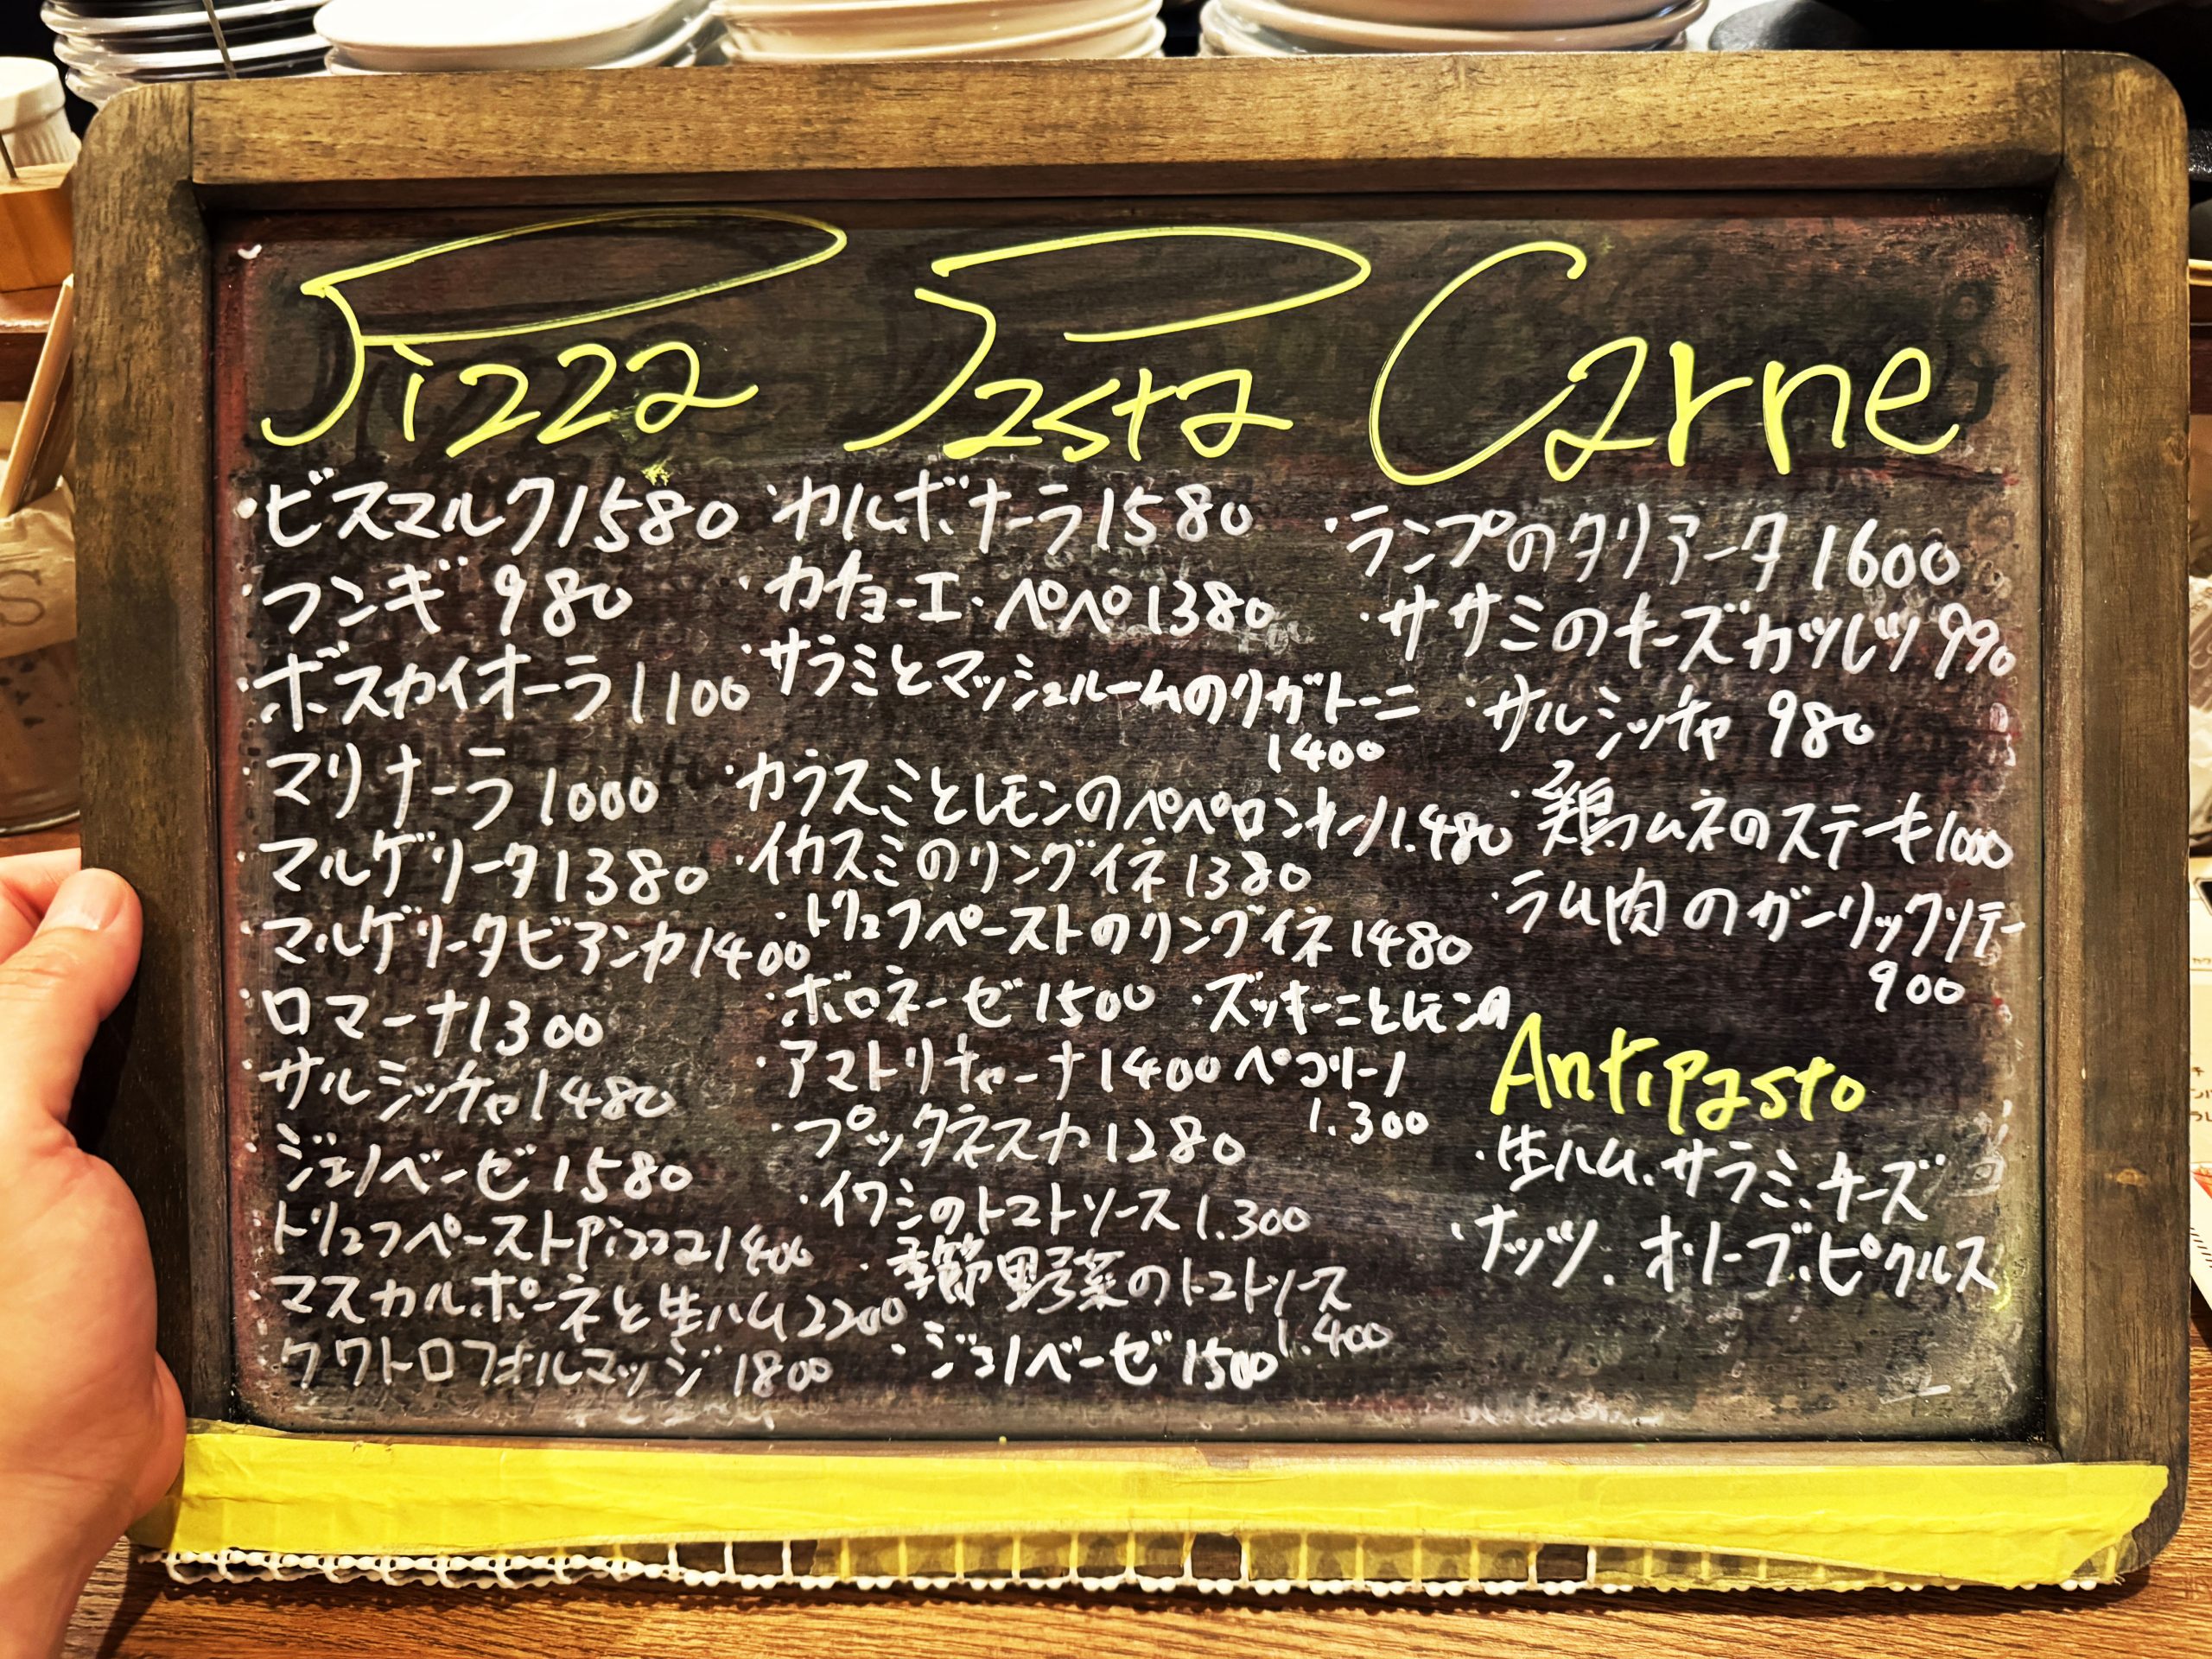 Pizza
・ビスマルク1580
・フンギ 980
・ボスカイオーラ1100
・マリナーラ1000
・マルゲリータ1380
・マルゲリータビアンカ1400
・ロマーナ1300
・サルシッチャ1480
・ジェノベーゼ1580
・トリュフペーストPizza1400
・マスカルポーネと生ハム2200
・クワトロフォルマッジ1800
Pasta
・カルボナーラ1580
・カチョーエ・ペペ1380
・サラミとマッシュルームのリガトーニ
1400
・カラスミとレモンのペペロンチーノ1.480
・イカスミのリングイネ1380
・トリュフペーストのリングイネ1480
・ボロネーゼ1500
・アマトリチャーナ1400
・ズッキーニとレモンの
ペコリーノ
1.300
・プッタネスカ1280
・イワシのトマトソース1.300
・季節野菜のトマトソース
1.400
・ジェノベーゼ1500
Carne
・ランプのタリアータ1600
・ササミのチーズカツレツ990
・サルシッチャ 980
・鶏ムネのステーキ1000
・ラム肉のガーリックソテー
900
Antipasto
・生ハム、サラミ、チーズ
・ナッツ、オリーブ、ピクルス